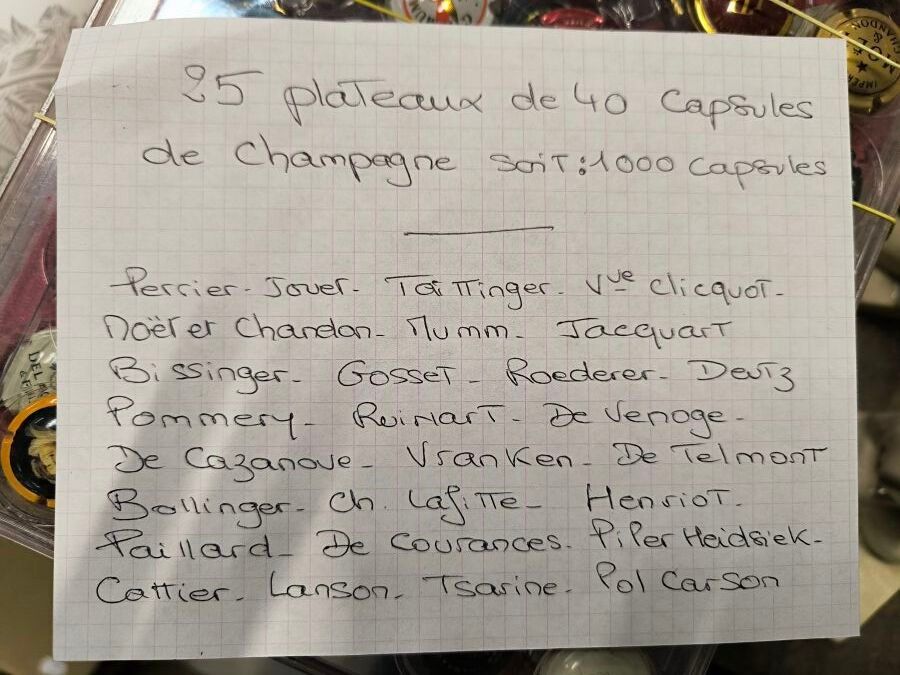 25 plateaux de 40 capsules
de Champagne soit : 1000 capsules
Perrier - Jouer - Taittinger - Vve Clicquot -
Moët et Chandon - Mumm - Jacquart
Bissinger - Gosset - Roederer - Deutz
Pommery - Ruinart - De Venoge -
De Cazanove - Vranken - De Telmont
Bollinger - Ch. Lafitte - Henriot -
Paillard - De Courances - Piper Heidsiek -
Cattier - Lanson - Tsarine - Pol Carson
MOËT & CHANDON
IMPERIAL